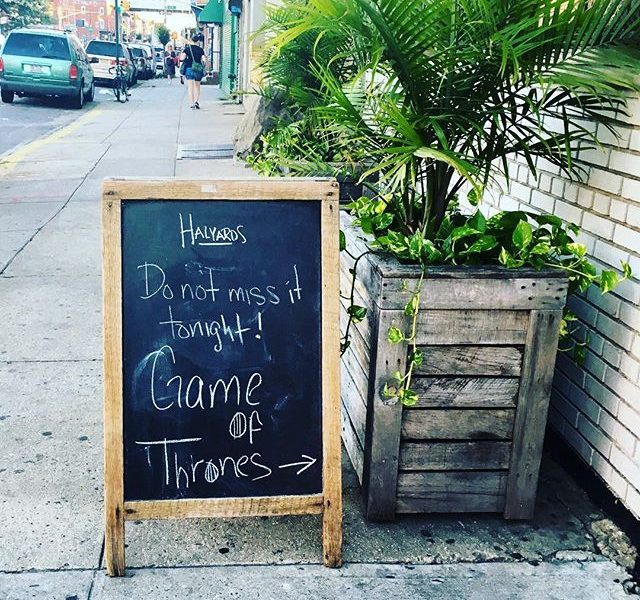 HALYARDS
Do not miss it
tonight!
Game
of
Thrones →